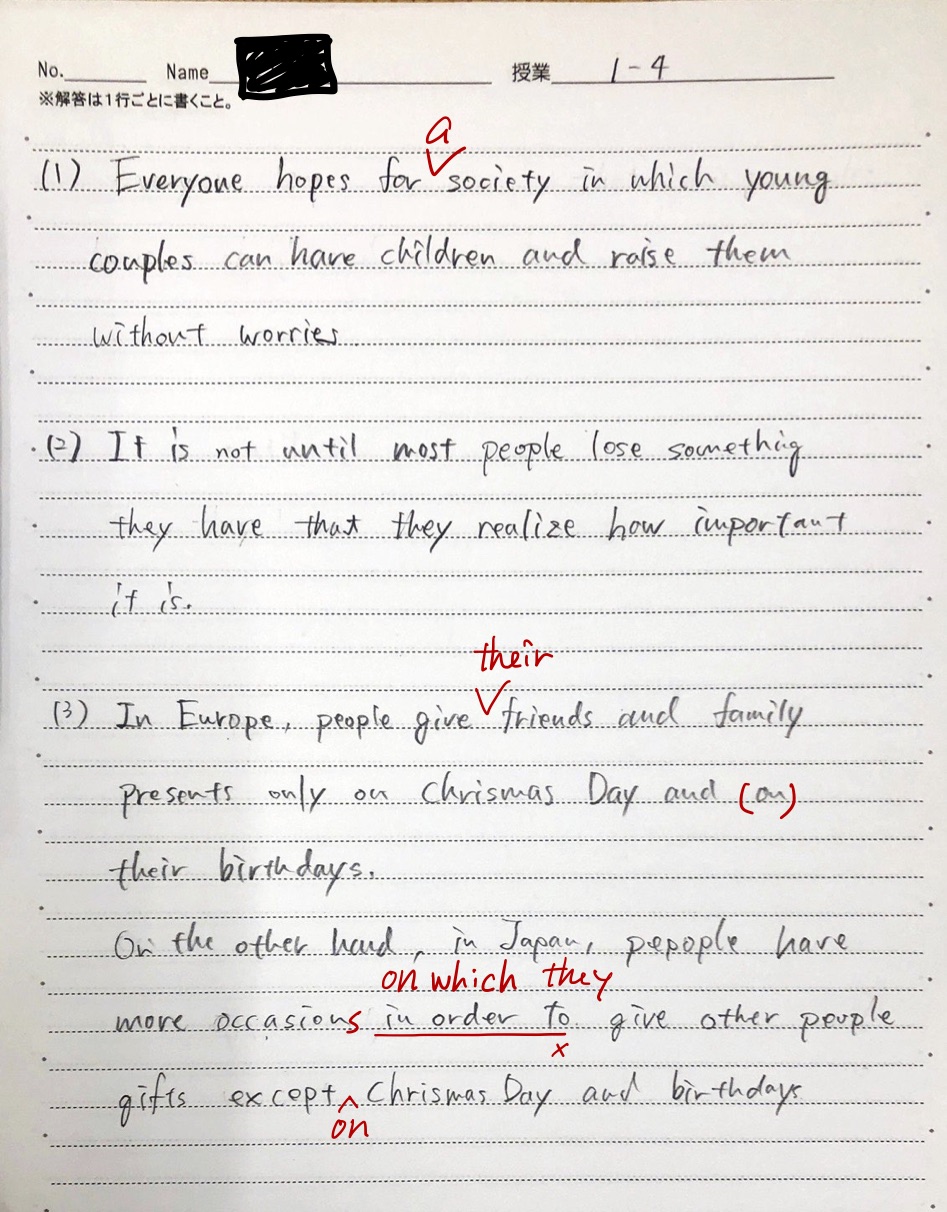 No. Name 授業 1-4
※解答は1行ごとに書くこと。
a
(1) Everyone hopes for society in which young
couples can have children and raise them
without worries
(2) It is not until most people lose something
they have that they realize how important
it is.
their
(3) In Europe, people give friends and family
presents only on Chrismas Day and (on)
their birthdays.
On the other hand, in Japan, pepople have
on which they
more occasions in order to give other people
x
gifts except Chrismas Day and birthdays
on